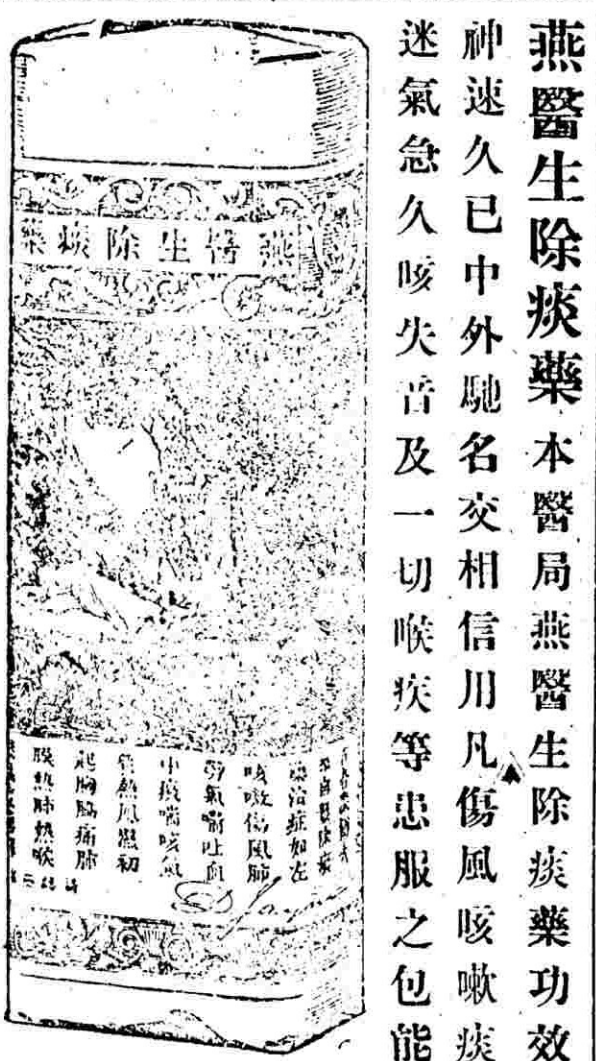 燕醫生除痰藥本醫局燕醫生除痰藥功效
神速久已中外馳名交相信用凡傷風咳嗽痰
迷氣急久咳失音及一切喉疾等患服之包能
燕醫生除痰藥
藥治症如左
咳嗽傷風肺
氣喘吐血
中痰喘咳氣
管熱風濕初
起胸脇痛肺
膜熱肺熱喉